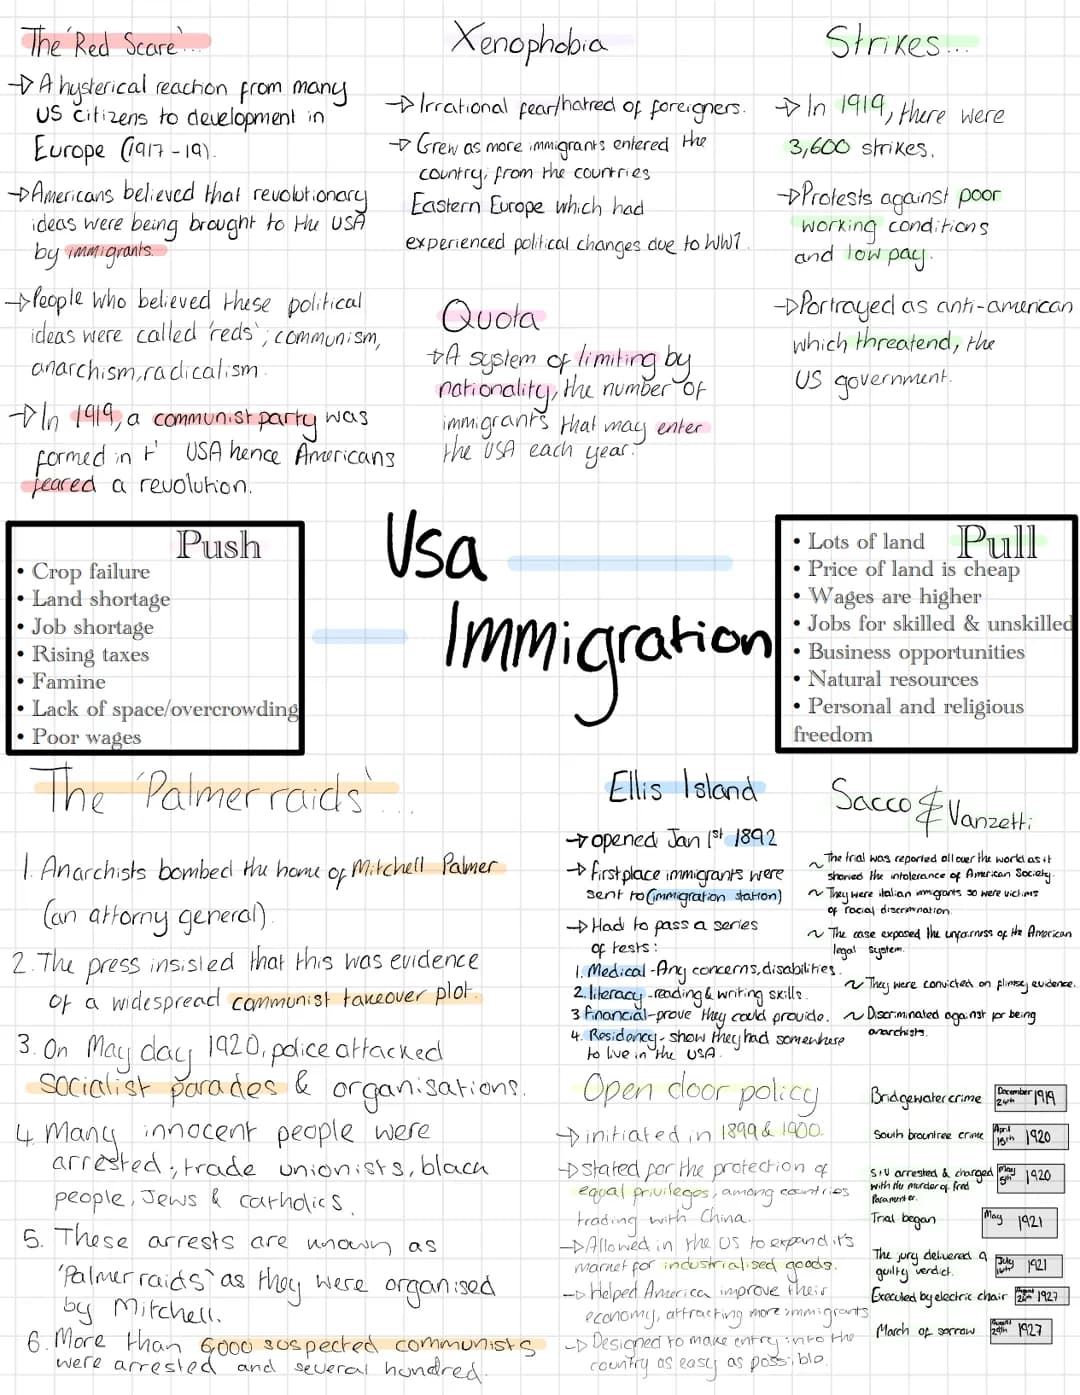 The 'Red Scare'...
→ A hysterical reaction from many
US citizens to development in
Europe (1917-19).
→ Americans believed that revolutionary
ideas were being brought to the USA
by immigrants.
→ People who believed these political
ideas were called 'reds'; communism,
anarchism, radicalism.
→ In 1919, a communist party was
formed in t' USA hence Americans
feared a revolution.
Xenophobia
→ Irrational fear/hatred of foreigners.
→ Grew as more immigrants entered the
country; from the countries
Eastern Europe which had
experienced political changes due to WW1.
Quota
→ A system of limiting by
nationality, the number of
immigrants that may enter
the USA each year.
Strikes...
→ In 1919, there were
3,600 strikes.
→ Protests against poor
working conditions
and low pay.
→ Portrayed as anti-american
which threatend, the
US government.
Push
• Crop failure
• Land shortage
• Job shortage
• Rising taxes
• Famine
• Lack of space/overcrowding
• Poor wages
Usa
Immigration
Pull
• Lots of land
• Price of land is cheap
• Wages are higher
• Jobs for skilled & unskilled
• Business opportunities
• Natural resources
• Personal and religious
freedom
The 'Palmer raids'...
1. Anarchists bombed the home of Mitchell Palmer
(an attorny general).
2. The press insisted that this was evidence
of a widespread communist takeover plot.
3. On May day 1920, police attacked
socialist parades & organisations.
4. Many innocent people were
arrested; trade unionists, black
people, Jews & catholics.
5. These arrests are known as
'Palmer raids' as they were organised
by Mitchell.
6. More than 6000 suspected communists
were arrested and several hundred.
Ellis Island
→ opened Jan 1st 1892
→ first place immigrants were
sent to (immigration station)
→ Had to pass a series
of tests:
1. Medical - Any concerns, disabilities.
2. literacy - reading & writing skills.
3 Financial - prove they could provide.
4. Residency - show they had somewhere
to live in the USA.
Open door policy
→ initiated in 1899 & 1900.
→ stated for the protection of
equal privileges, among countries
trading with China.
→ Allowed in the US to expand it's
market for industrialised goods.
→ Helped America improve their
economy, attracting more immigrants
→ Designed to make entry into the
country as easy as possible.
Sacco & Vanzetti
~ The trial was reported all over the world as it
showed the intolerance of American Society.
~ They were italian immigrants so were victims
of racial discrimination.
~ The case exposed the unfairness of the American
legal system.
~ They were convicted on flimsy evidence.
~ Discriminated against for being
anarchists.
Bridgewater crime December 24th 1919
South braintree crime April 15th 1920
S+V arrested & charged May 5th 1920
with the murder of fred
Paramenter.
Trial began May 1921
The jury delivered a July 14th 1921
guilty verdict.
Executed by electric chair 1927
March of sorrow 1927